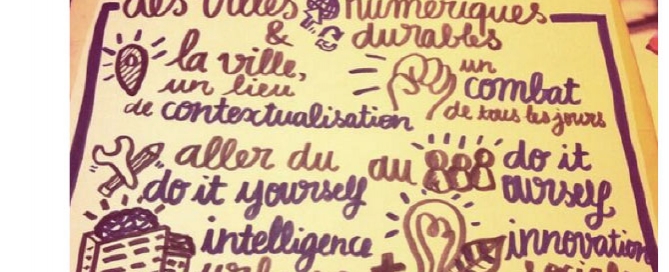 des villes numériques
& durables
la ville,
un lieu
de contextualisation
un
combat
de tous les jours
aller du
do it yourself
au do it
ourself
intelligence
+
innovation